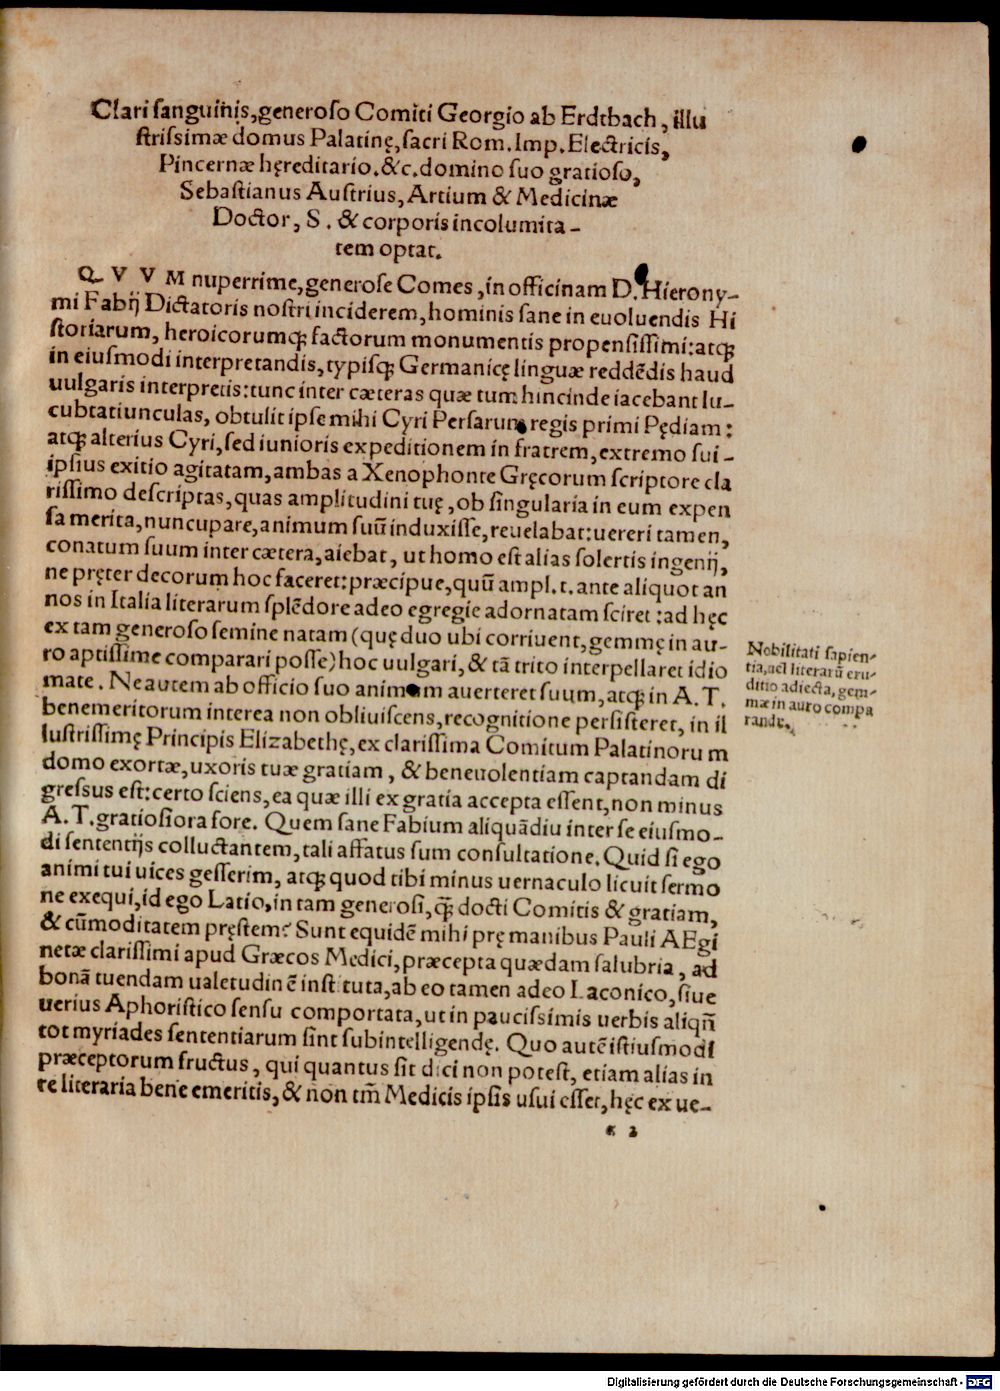 Clari sanguinis, generoso Comiti Georgio ab Erdtbach, illu
strissimæ domus Palatinę, sacri Rom. Imp. Electricis,
Pincernæ hęreditario. &c. domino suo gratioso,
Sebastianus Austrius, Artium & Medicinæ
Doctor, S. & corporis incolumita-
tem optat.
QVVM nuperrime, generose Comes, in officinam D. Hierony-
mi Fabrij Dictatoris nostri inciderem, hominis sane in euoluendis Hi
storiarum, heroicorumq; factorum monumentis propensissimi: atq;
in eiusmodi interpretandis, typisq; Germanicę linguæ reddēdis haud
uulgaris interpretis: tunc inter cæteras quæ tum hincinde iacebant lu-
cubtatiunculas, obtulit ipse mihi Cyri Persarum regis primi Pędiam:
atq; alterius Cyri, sed iunioris expeditionem in fratrem, extremo sui-
ipsius exitio agitatam, ambas a Xenophonte Gręcorum scriptore cla
rissimo descriptas, quas amplitudini tuę, ob singularia in eum expen
sa merita, nuncupare, animum suū induxisse, reuelabat: uereri tamen,
conatum suum inter cætera, aiebat, ut homo est alias solertis ingenij,
ne pręter decorum hoc faceret: præcipue, quū ampl. t. ante aliquot an
nos in Italia literarum splēdore adeo egregie adornatam sciret: ad hęc
ex tam generoso semine natam (quę duo ubi corriuent, gemmę in au-
ro aptissime comparari posse) hoc uulgari, & tā trito interpellaret idio
mate. Ne autem ab officio suo animum auerteret suum, atq; in A. T.
benemeritorum interea non obliuiscens, recognitione persisteret, in il
lustrissimę Principis Elizabethę, ex clarissima Comitum Palatinorum
domo exortæ, uxoris tuæ gratiam, & beneuolentiam captandam di
gressus est: certo sciens, ea quæ illi ex gratia accepta essent, non minus
A. T. gratiosiora fore. Quem sane Fabium aliquādiu inter se eiusmo-
di sententijs colluctantem, tali affatus sum consultatione. Quid si ego
animi tui uices gesserim, atq; quod tibi minus uernaculo licuit sermo
ne exequi, id ego Latio, in tam generosi, q̄; docti Comitis & gratiam,
& cūmoditatem pręstem? Sunt equidē mihi prę manibus Pauli AEgi
netæ clarissimi apud Græcos Medici, præcepta quædam salubria, ad
bonā tuendam ualetudinē instituta, ab eo tamen adeo Laconico, siue
uerius Aphoristico sensu comportata, ut in paucissimis uerbis aliqñ
tot myriades sententiarum sint subintelligendę. Quo autē istiusmodi
præceptorum fructus, qui quantus sit dici non potest, etiam alias in
re literaria bene emeritis, & non tm̄ Medicis ipsis usui esset, hęc ex ue-
Nobilitati sapien-
tia, uel literarū eru-
ditio adiecta, gem-
mæ in auro compa
randę.
Digitalisierung gefördert durch die Deutsche Forschungsgemeinschaft - DFG